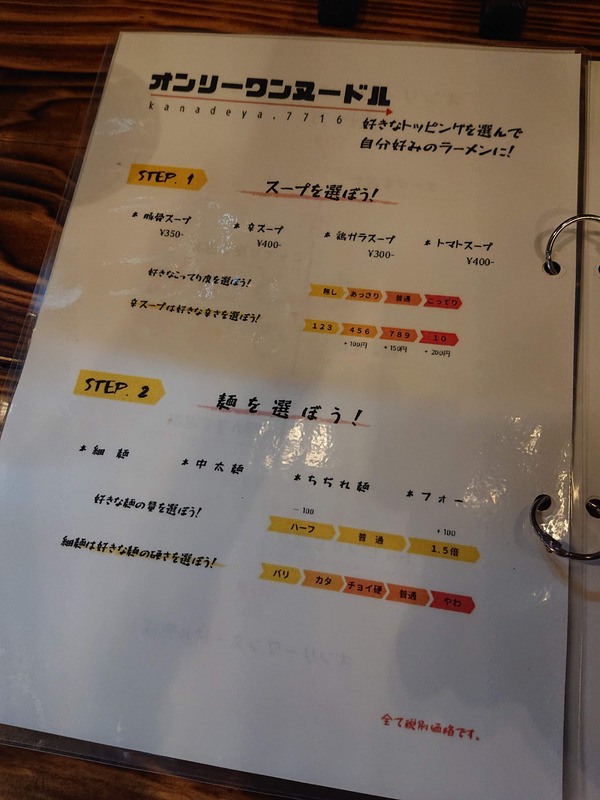 オンリーワンヌードル
kanadeya.7716
好きなトッピングを選んで
自分好みのラーメンに！
STEP. 1
スープを選ぼう！
* 豚骨スープ * 辛スープ * 鶏ガラスープ * トマトスープ
¥350- ¥400- ¥300- ¥400-
好きなこってり度を選ぼう！ 無し あっさり 普通 こってり
辛スープは好きな辛さを選ぼう！ 1 2 3 4 5 6 7 8 9 1 0
+100円 +150円 +200円
STEP. 2
麺を選ぼう！
* 細麺 * 中太麺 * ちぢれ麺 * フォー
－100 +100
好きな麺の量を選ぼう！ ハーフ 普通 1.5倍
細麺は好きな麺の硬さを選ぼう！ バリ カタ チョイ硬 普通 やわ
全て税別価格です。